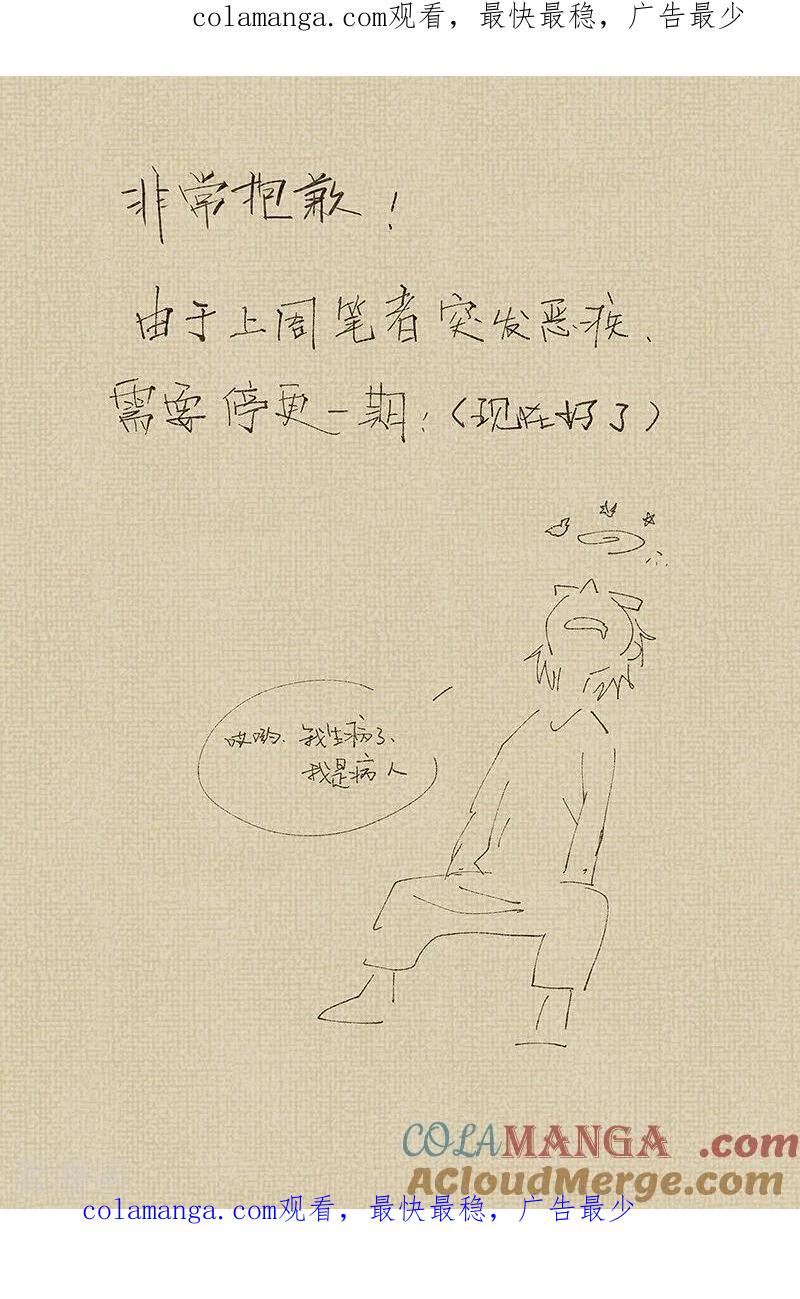 colamanga.com观看，最快最稳，广告最少
非常抱歉！
由于上周笔者突发恶疾、
需要停更一期；（现在好了）
哎哟、我生病了、
我是病人
COLAMANGA.com
ACloudMerge.com
colamanga.com观看，最快最稳，广告最少